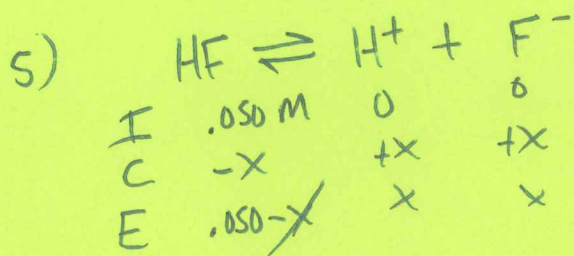 5) HF ⇌ H⁺ + F⁻
I .050 M 0 0
C -x +x +x
E .050-x x x